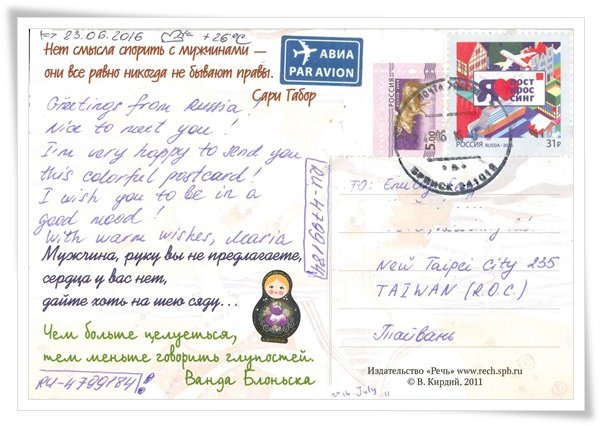 23.06.2016 +26°C
Нет смысла спорить с мужчинами —
они все равно никогда не бывают правы.
Сари Габор
Greetings from Russia!
Nice to meet you!
I'm very happy to send you
this colorful postcard!
I wish you to be in a
good mood!
With warm wishes, Maria
RU-4799184
Мужчина, руку вы не предлагаете,
сердца у вас нет,
дайте хоть на шею сяду...
Чем больше целуешься,
тем меньше говорить глупостей.
Ванда Блоньска
RU-4799184!
АВИА
PAR AVION
РОССИЯ
5.00
Я
ПОСТ
КРОС
СИНГ
РОССИЯ RUSSIA 2015 31₽
ПОЧТА
БРЯНСК 241918
TO:
New Taipei City 235
TAIWAN (R.O.C.)
Тайвань
Издательство «Речь» www.rech.spb.ru
© В. Кирдий, 2011
16 July